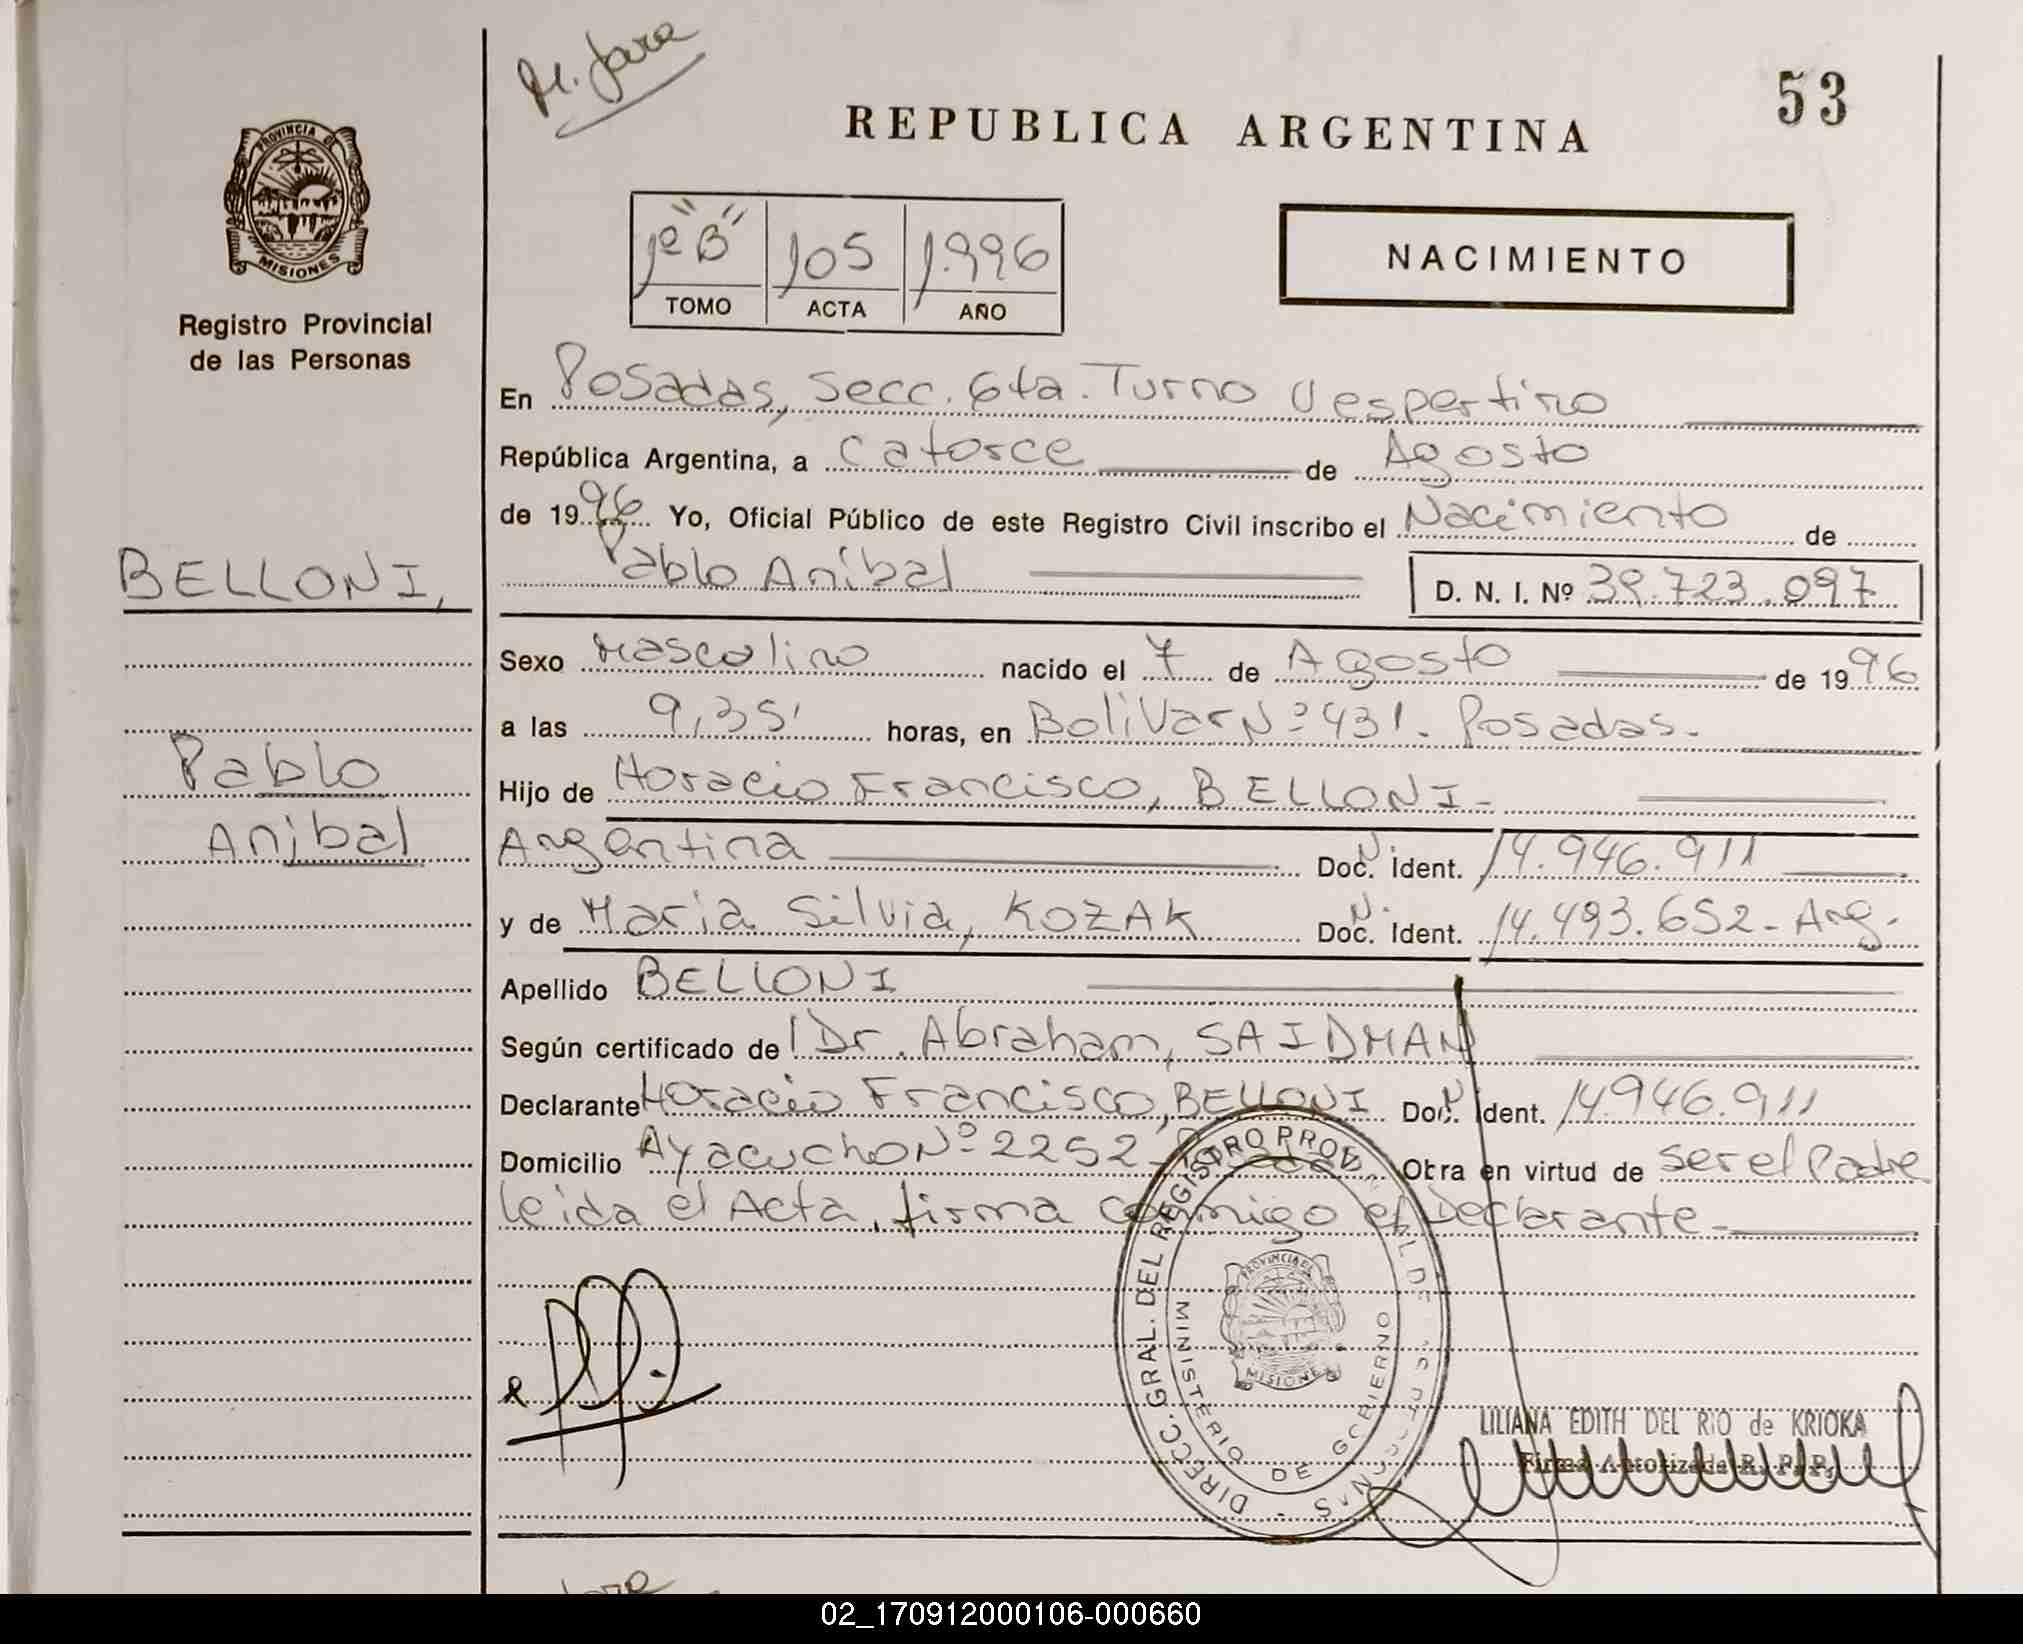 M. Jara
53
REPUBLICA ARGENTINA
PROVINCIA DE
MISIONES
Registro Provincial
de las Personas
1º "B" 105 1.996
TOMO ACTA AÑO
NACIMIENTO
En Posadas, Secc. 6ta. Turno Vespertino
República Argentina, a Catorce de Agosto
de 1996 Yo, Oficial Público de este Registro Civil inscribo el Nacimiento de
BELLONI,
Pablo Aníbal D. N. I. Nº 39.723.097
Sexo Masculino nacido el 7 de Agosto de 1996
a las 9,35' horas, en Bolivar Nº 431. Posadas.
Pablo
Aníbal
Hijo de Horacio Francisco, BELLONI-
Argentina Doc. N. Ident. 14.946.911
y de Maria Silvia, KOZAK Doc. N. Ident. 14.493.652- Arg.
Apellido BELLONI
Según certificado de Dr. Abraham, SAIDMAN
Declarante Horacio Francisco, BELLONI Doc. N. Ident. 14946.911
Domicilio Ayacucho Nº 2252- Posadas. Obra en virtud de ser el Padre
leida el Acta, firma conmigo el Declarante-
DIRECC. GRAL. DEL REGISTRO PROV
MINISTERIO DE GOBIERNO
PROVINCIA DE
MISIONES
LILIANA EDITH DEL RIO de KRIOKA
Firma Autorizada R. P. P.
02_170912000106-000660